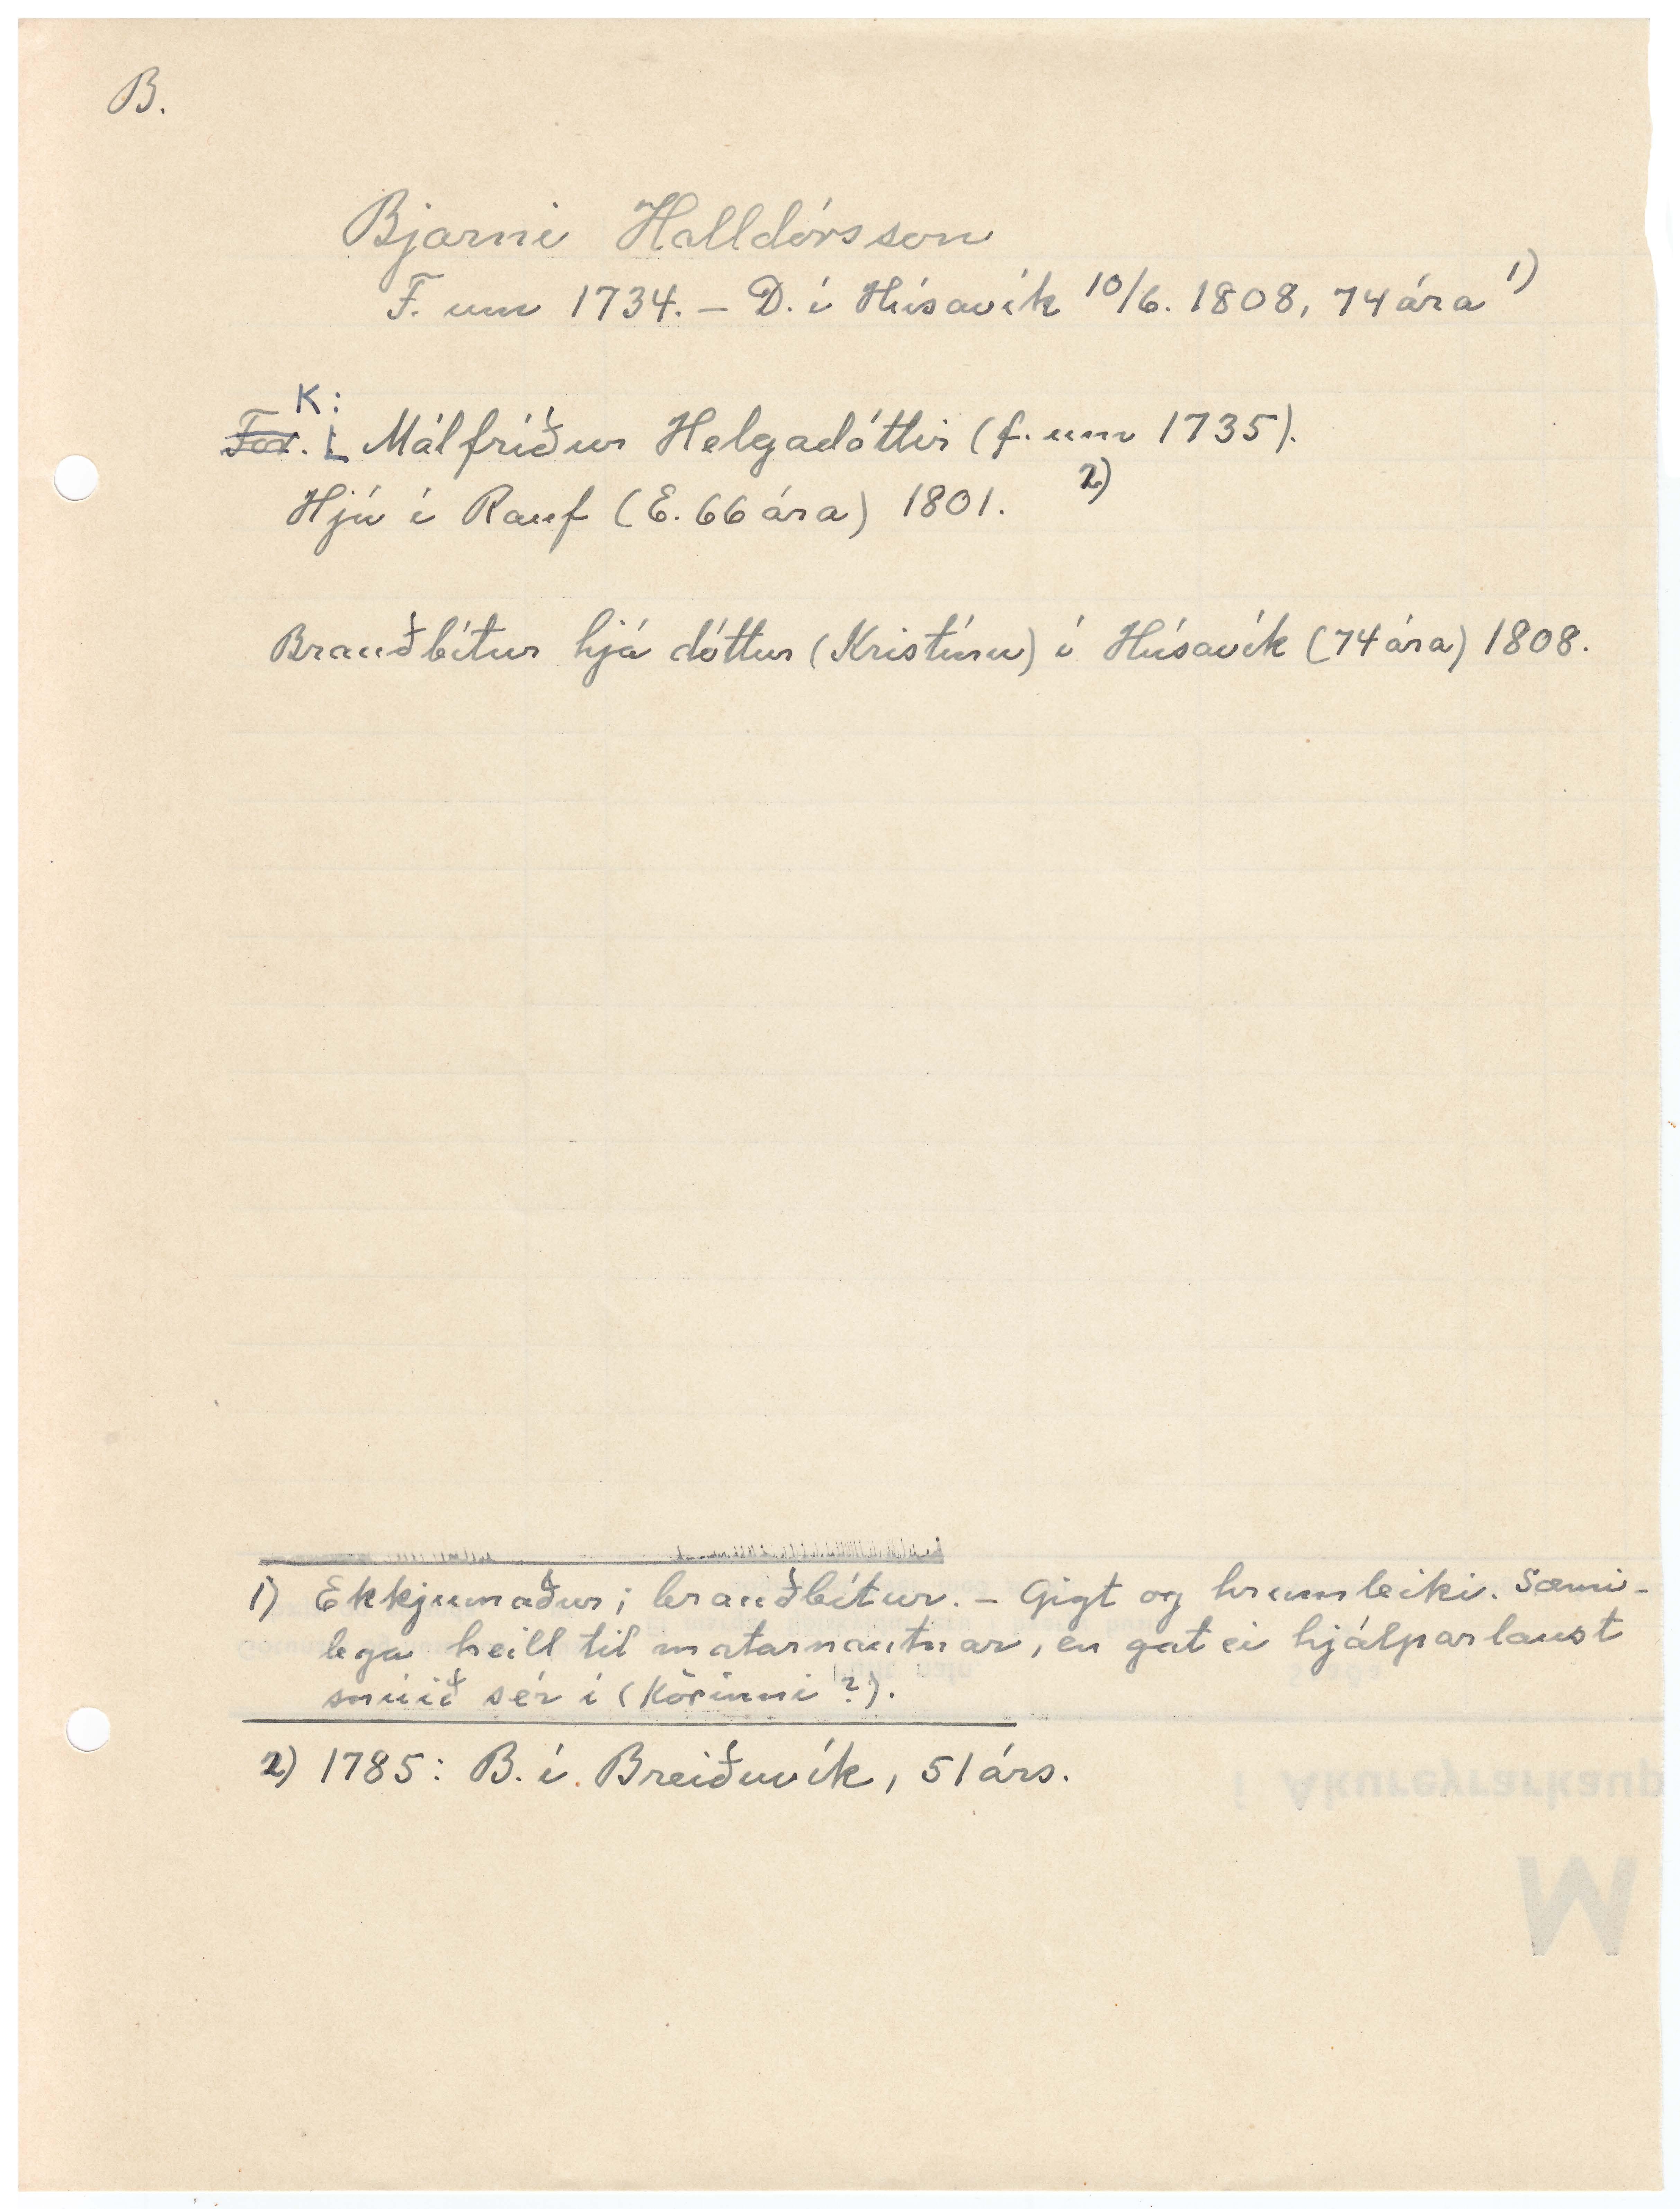 B.
Bjarni Halldórsson
F. um 1734. – D. í Húsavík 10/6. 1808, 74 ára 1)
K:
Málfríður Helgadóttir (f. um 1735).
Hjú í Rauf (E. 66 ára) 1801. 2)
Brauðbítur hjá dóttur (Kristínu) í Húsavík (74 ára) 1808.
1) Ekkjumaður; brauðbítur. – Gigt og hrumleiki. Sæmi-
lega heill til matarnautnar, en gat ei hjálparlaust
snúið sér í (körinni?).
2) 1785: B. í Breiðuvík, 51 árs.
í Akureyrarkaup
M